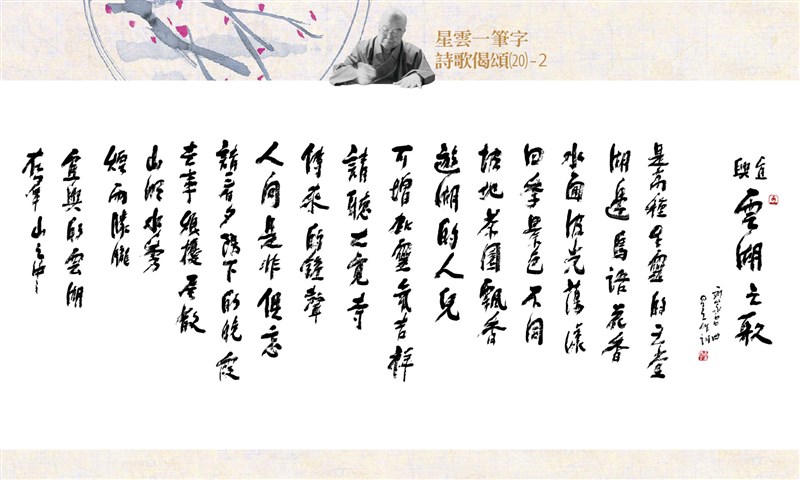 星雲一筆字
詩歌偈頌(20)-2
宜興
雲湖之歌
劉家昌曲
星雲作詞
是萬種生靈的天堂
湖邊鳥語花香
水面波光蕩漾
四季景色不同
坡地茶園飄香
遊湖的人兒
可增加靈氣吉祥
請聽大覺寺
傳來的鐘聲
人間是非俱忘
請看夕陽下的晚霞
事煩擾盡散
山明水秀
煙雨朦朧
宜興的雲湖
在群山之中